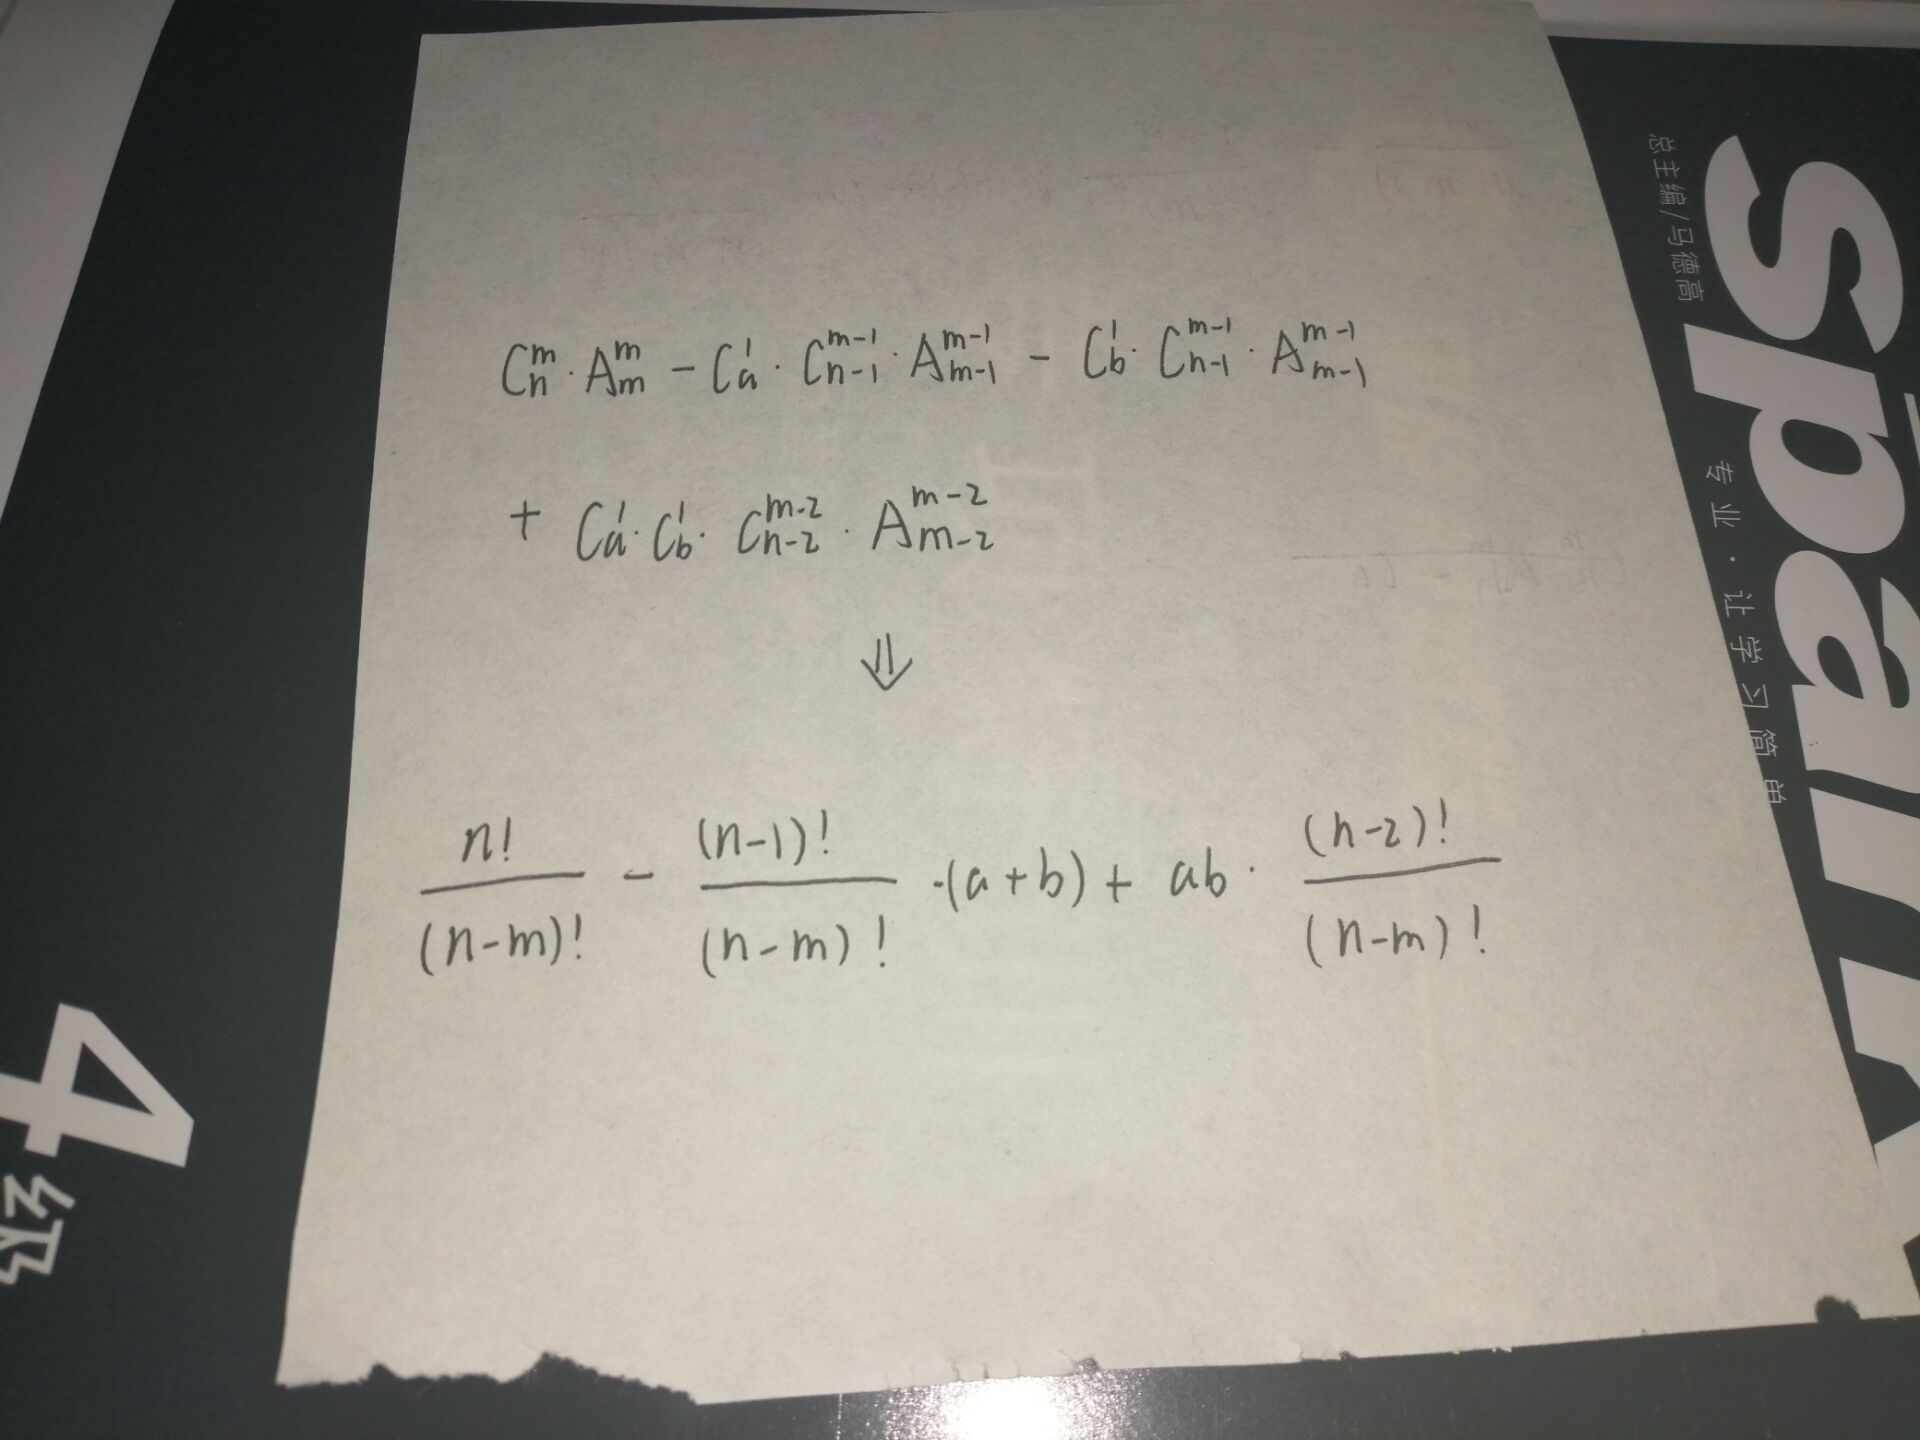 C_n^m · A_m^m − C_a^1 · C_{n-1}^{m-1} · A_{m-1}^{m-1} − C_b^1 · C_{n-1}^{m-1} · A_{m-1}^{m-1}
+ C_a^1 · C_b^1 · C_{n-2}^{m-2} · A_{m-2}^{m-2}
⇓
\frac{n!}{(n-m)!} − \frac{(n-1)!}{(n-m)!} ·(a+b) + ab · \frac{(n-2)!}{(n-m)!}
总主编/马德高
专业·让学习简单
4级